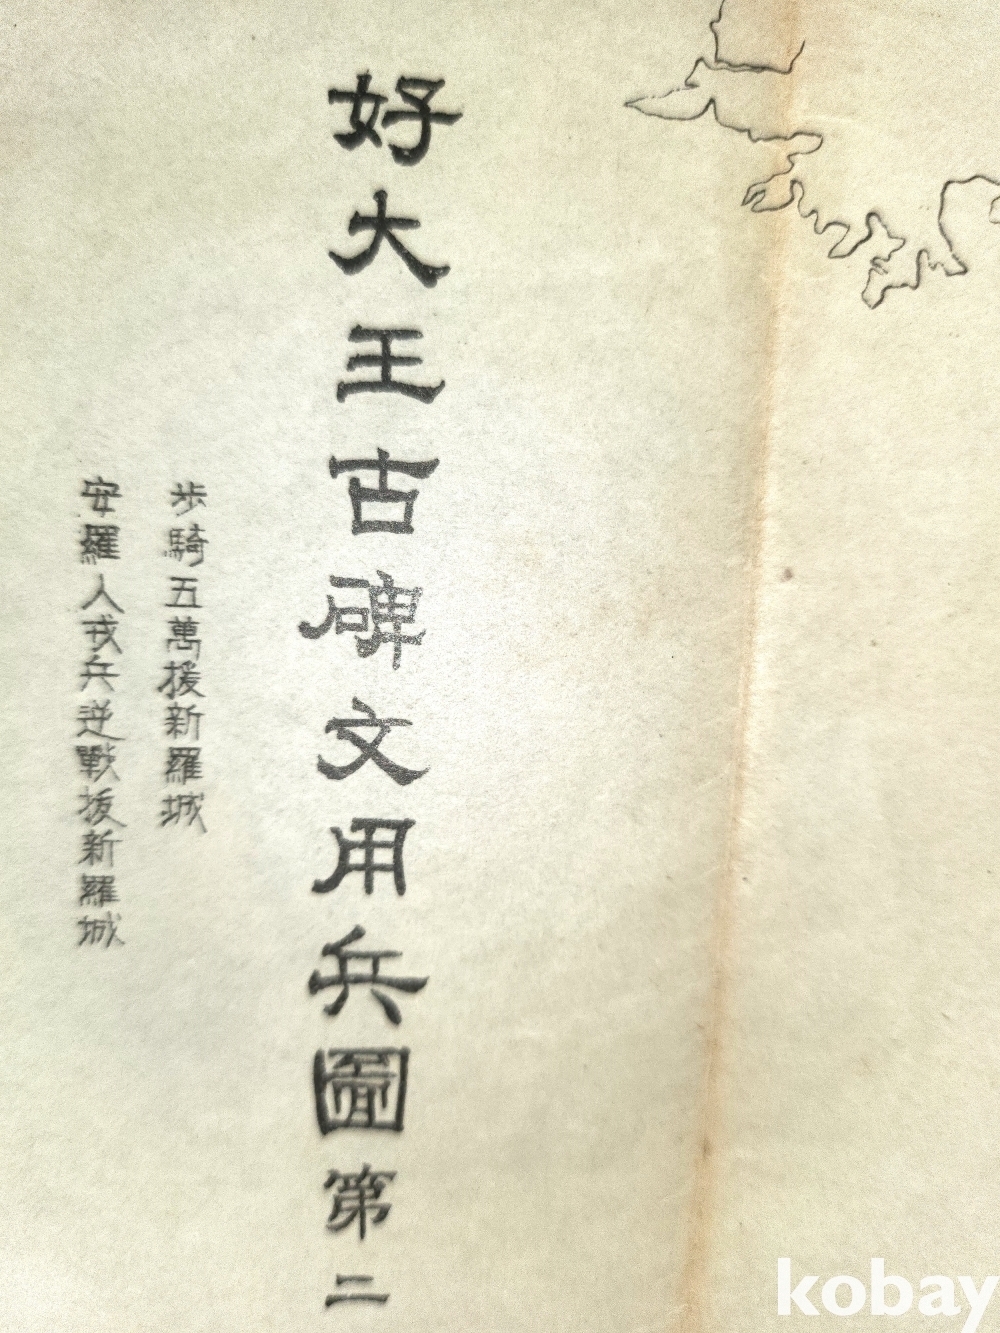 好大王古碑文用兵圖第二
步騎五萬援新羅城
安羅人戎兵逆戰拔新羅城
kobay